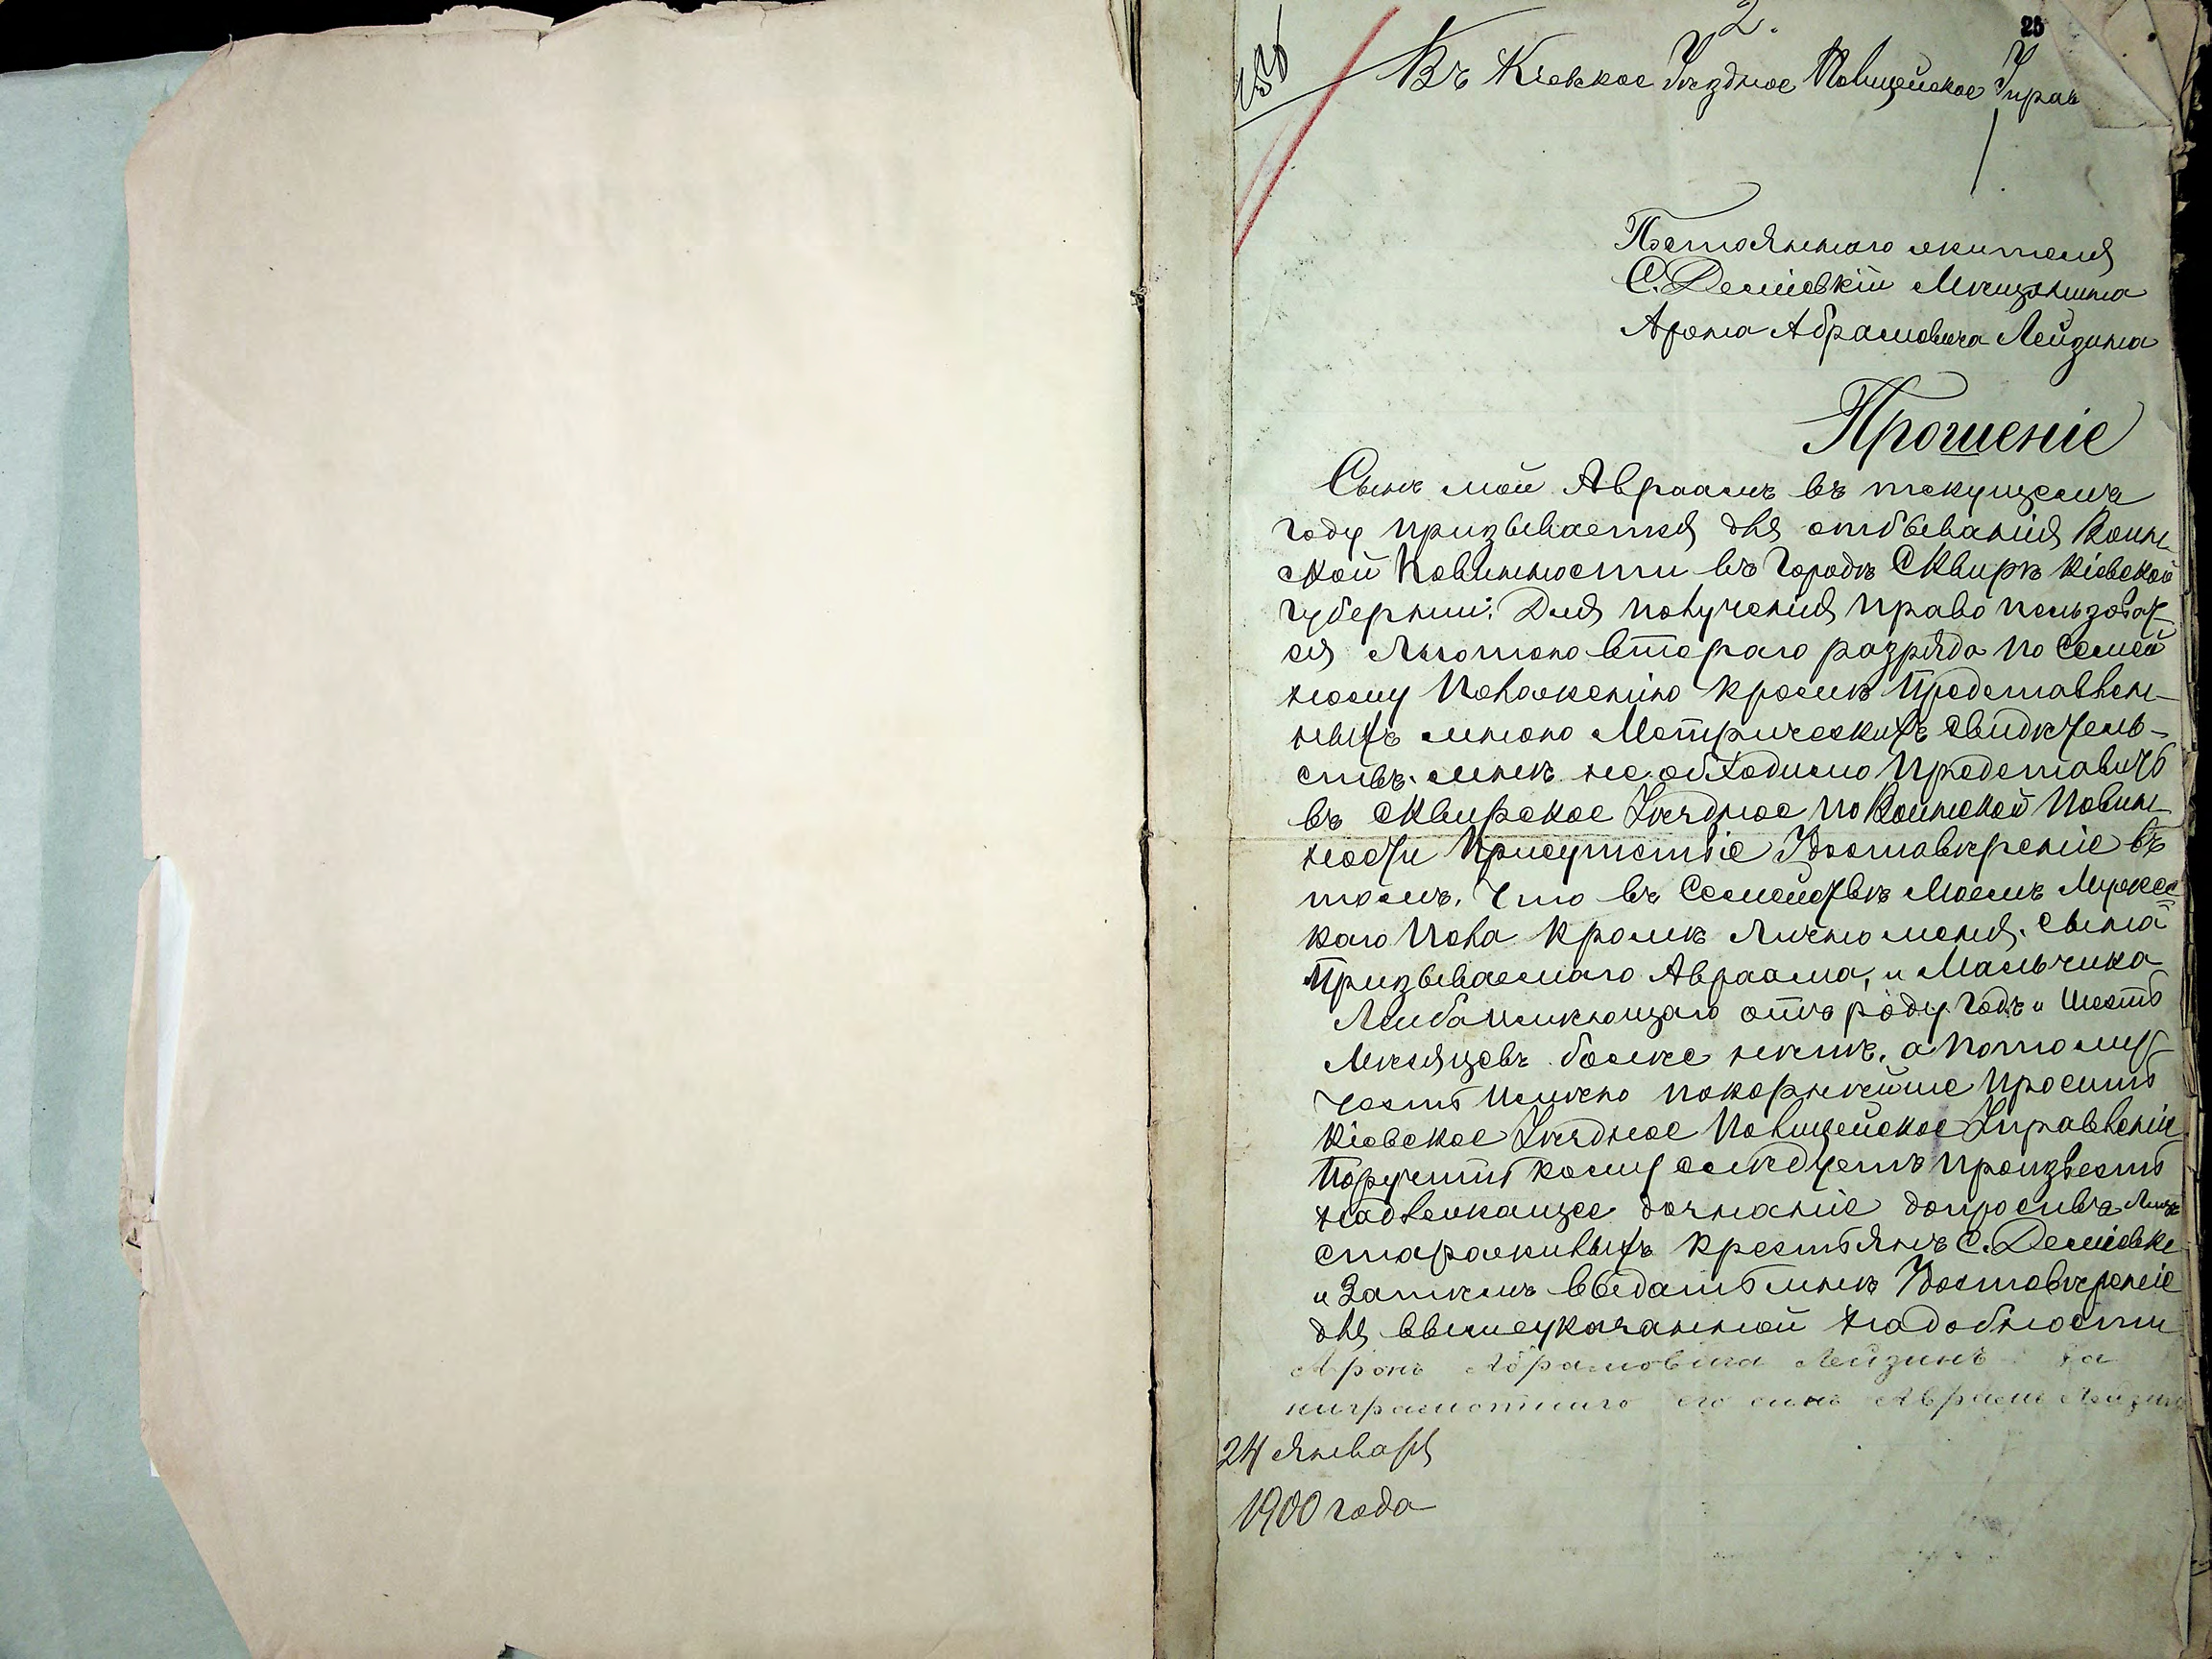 2.
25
Въ Кіевское Уѣздное Полицейское Управ
Постояннаго жителя
С. Деміевкіи Мѣщанина
Арона Абрамовича Лейзина
Прошеніе
Сынъ мой Авраамъ въ текущемъ
году призывается для отбыванія Воин-
ской Повинности въ Городѣ Сквирѣ Кіевской
губерніи. Для полученія право пользоват-
ся льготою втораго разряда по Семей
ному Положенію кромѣ Представлен-
ныхъ мною Метрическихъ Свидѣтель-
ствъ. мнѣ необходимо Представить
въ Сквирское Уѣздное по Воинской Повин-
ности Присутствіе Удостовѣреніе въ
томъ. Что въ Семействѣ Моемъ Мужес-
каго Пола Кромѣ Лично меня. Сына
Призываемаго Авраама, и Мальчика
Лейба имѣющаго отъ роду Годъ и Шесть
Мѣсяцевъ болѣе нѣтъ. а потому
Честь Имѣю покорнѣйше Просить
Кіевское Уѣздное Полицейское Управленіе
Поручить кому слѣдуетъ Произвесть
надлежащее дознаніе допросивъ
старожилыхъ крестьянъ С. Деміевки
и Затѣмъ выдать мнѣ Удостовѣреніе
для вышеуказанной Надобности
Аронъ Абрамовича Лейзинъ за
неграмотнаго его сынъ Абрамъ Лейзинъ
24 Января
1900 года